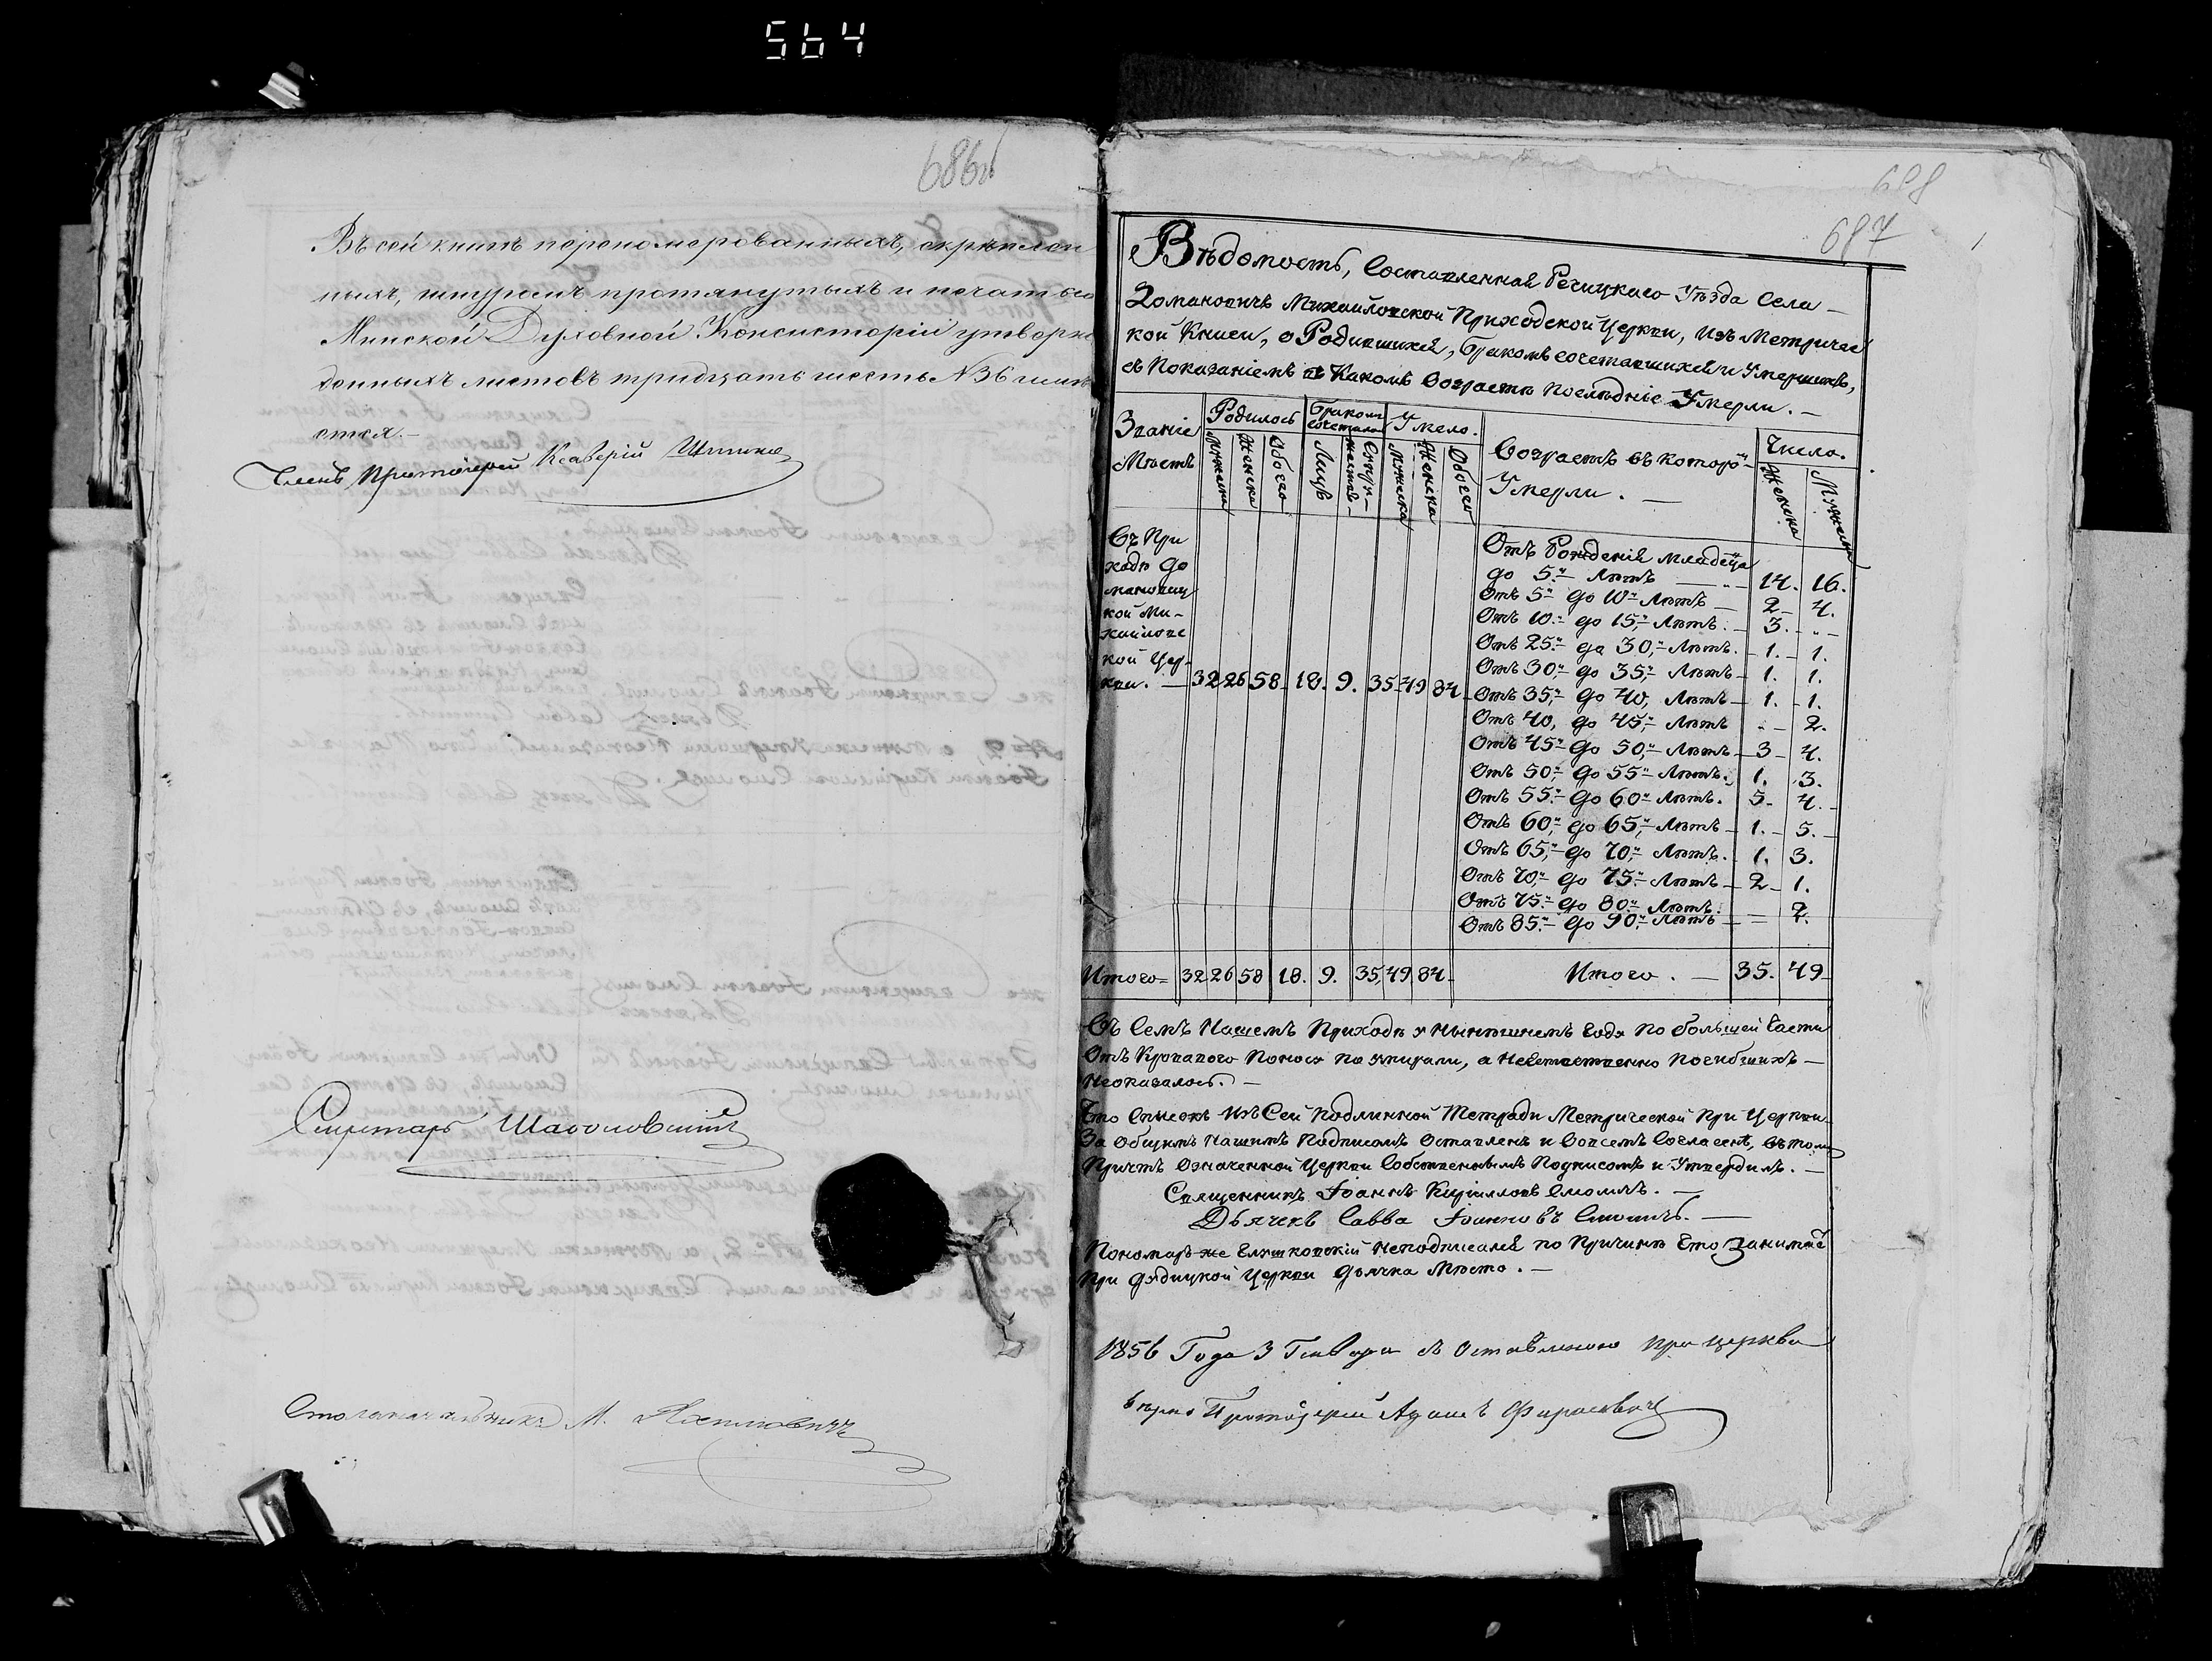 564
686об
Въ сей книгѣ переномерованныхъ, скрѣплен
ныхъ, шнуромъ протянутыхъ и печатью
Минской Духовной Консисторіи утверж
денныхъ листовъ тридцать шесть №36 имѣ
ется.
Членъ Протоіерей Ксаверій
Секретарь
Столоначальникъ М.
688
687
Вѣдомость, Составленная Речицкаго Уѣзда Села
Домановичъ Михайловской Приходской Церкви, изъ Метричес
кой Книги, о Родившихся, бракомъ сочетавшихся и Умершихъ,
съ Показаніемъ въ Какомъ Возрастѣ послѣдніе Умерли. —
Званіе Мѣстъ
Родилось
Бракомъ сочеталось
Умело.
Возрастъ въ которо Умерли. —
Число.
Мужеска Женска Обоего Лицъ Супружествъ Мужеска Женска Обоего Женска Мужеска
Въ При
ходѣ До
мановиц
кой Ми-
хайловс
кой Цер-
кви. — 32 26 58 18. 9. 35 49 84
Отъ Рожденія младенца
до 5. Лѣтъ — 14. 16.
Отъ 5 до 10 Лѣтъ — 2 4.
Отъ 10. до 15, Лѣтъ. 3. „ —
Отъ 25. до 30, Лѣтъ. 1. 1.
Отъ 30 до 35, Лѣтъ 1. 1.
Отъ 35, до 40, Лѣтъ — 1. 1.
Отъ 40, до 45, Лѣтъ — 2.
Отъ 45 до 50, Лѣтъ 3 4.
Отъ 50, до 55 Лѣтъ. 1. 3.
Отъ 55. до 60 Лѣтъ. 5. 4.
Отъ 60, до 65, Лѣтъ 1. 5.
Отъ 65, до 70, Лѣтъ. 1. 3.
Отъ 70, до 75. Лѣтъ 2 1.
Отъ 75. до 80. Лѣтъ.
Отъ 85. до 90. Лѣтъ —
Итого 32 26 58 18. 9. 35, 49, 84 Итого. — 35. 49
Въ Семъ Нашемъ Приходѣ у Нынѣшнемъ Годѣ по большей Части
Отъ Кроваваго Поноса по умирали, а Неестественно Погибшихъ —
Неоказалось. —
Что Списокъ изъ Сей Подлинной Тетради Метрической При Церкви
За Общимъ Нашимъ Подписомъ Оставленъ и Вовсемъ Согласенъ, въ томъ
Причтъ Означенной Церкви Собственнымъ Подписомъ и Утвердилъ. —
Священникъ Іоаннъ Кирилловъ Смоличъ. —
Дьячекъ Савва Іоанновъ Смоличъ. —
Пономарь же неподписался по Причинѣ Что Занимае
При Дядицкой Церкви Дьячка Мѣсто. —
1856 Года 3 Генваря Съ Оставленною при Церкви
вѣрно Протоіерей Адамъ